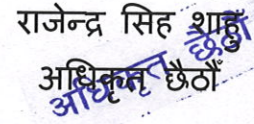 राजेन्द्र सिह शाहु
अधिकृत छैठौं
अधिकृत छैठौं